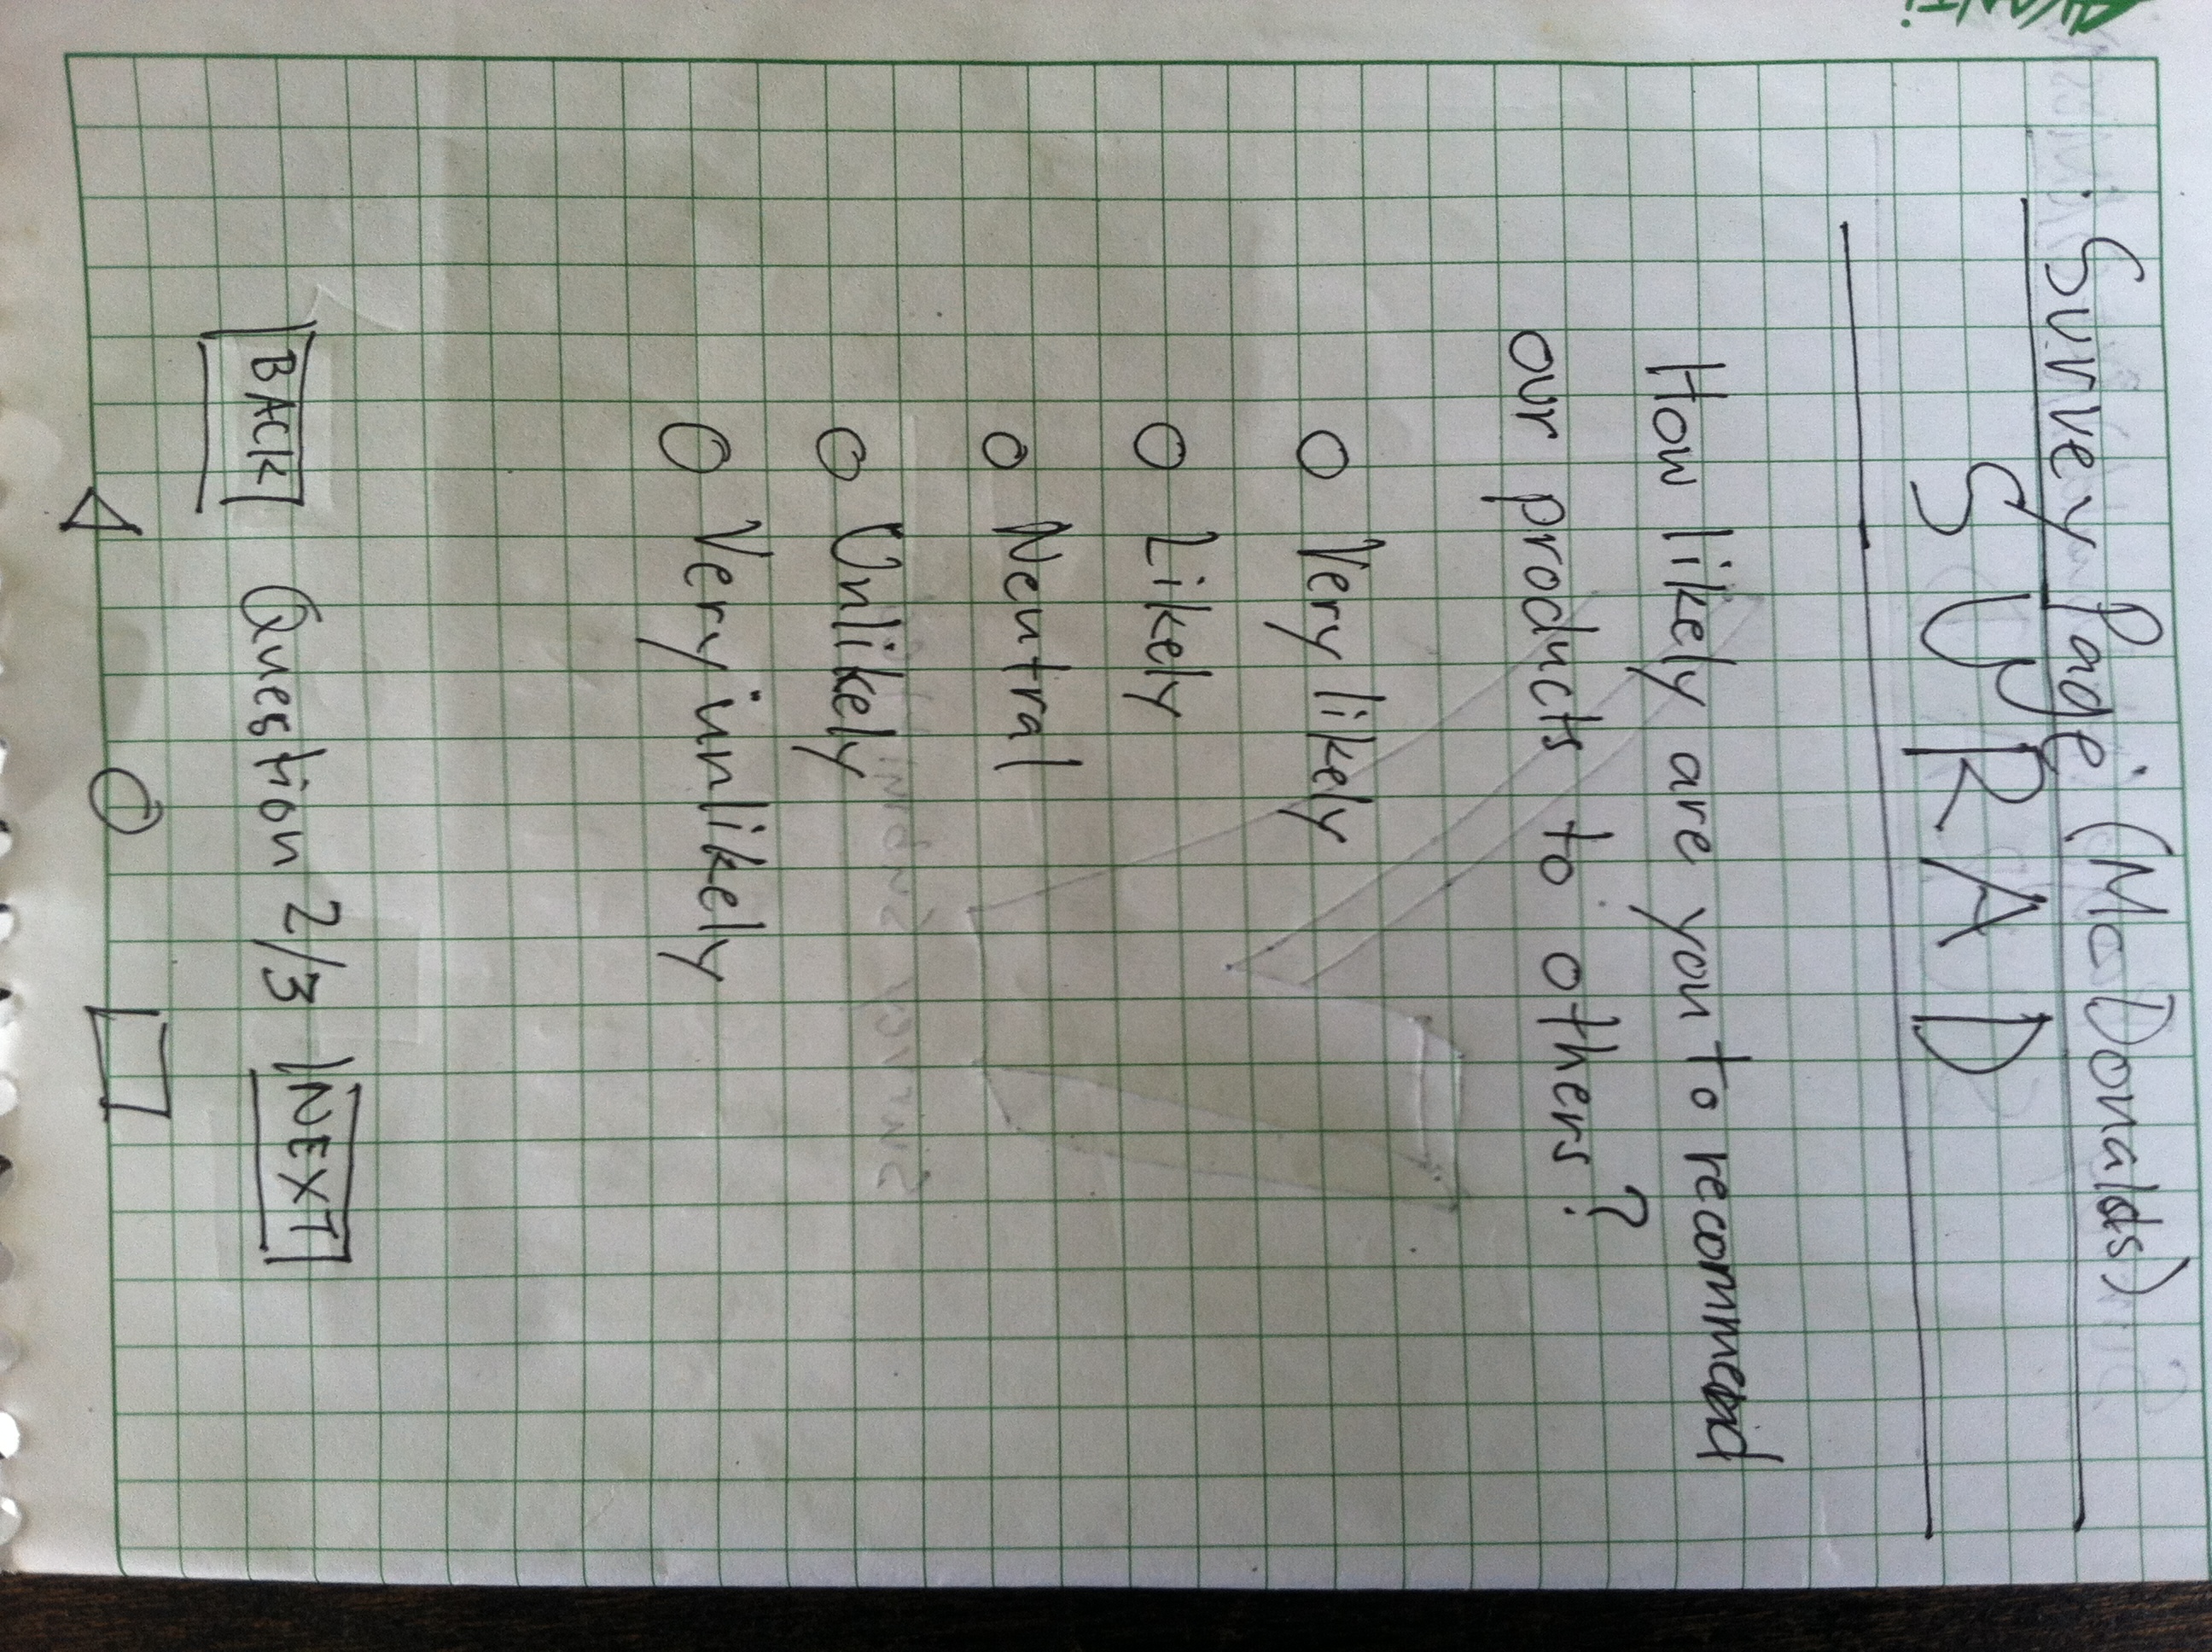 AVANTI
Survey Page (McDonalds)
SURAD
How likely are you to recommed
our products to others?
Very likely
Likely
Neutral
Unlikely
Very unlikely
BACK Question 2/3 NEXT